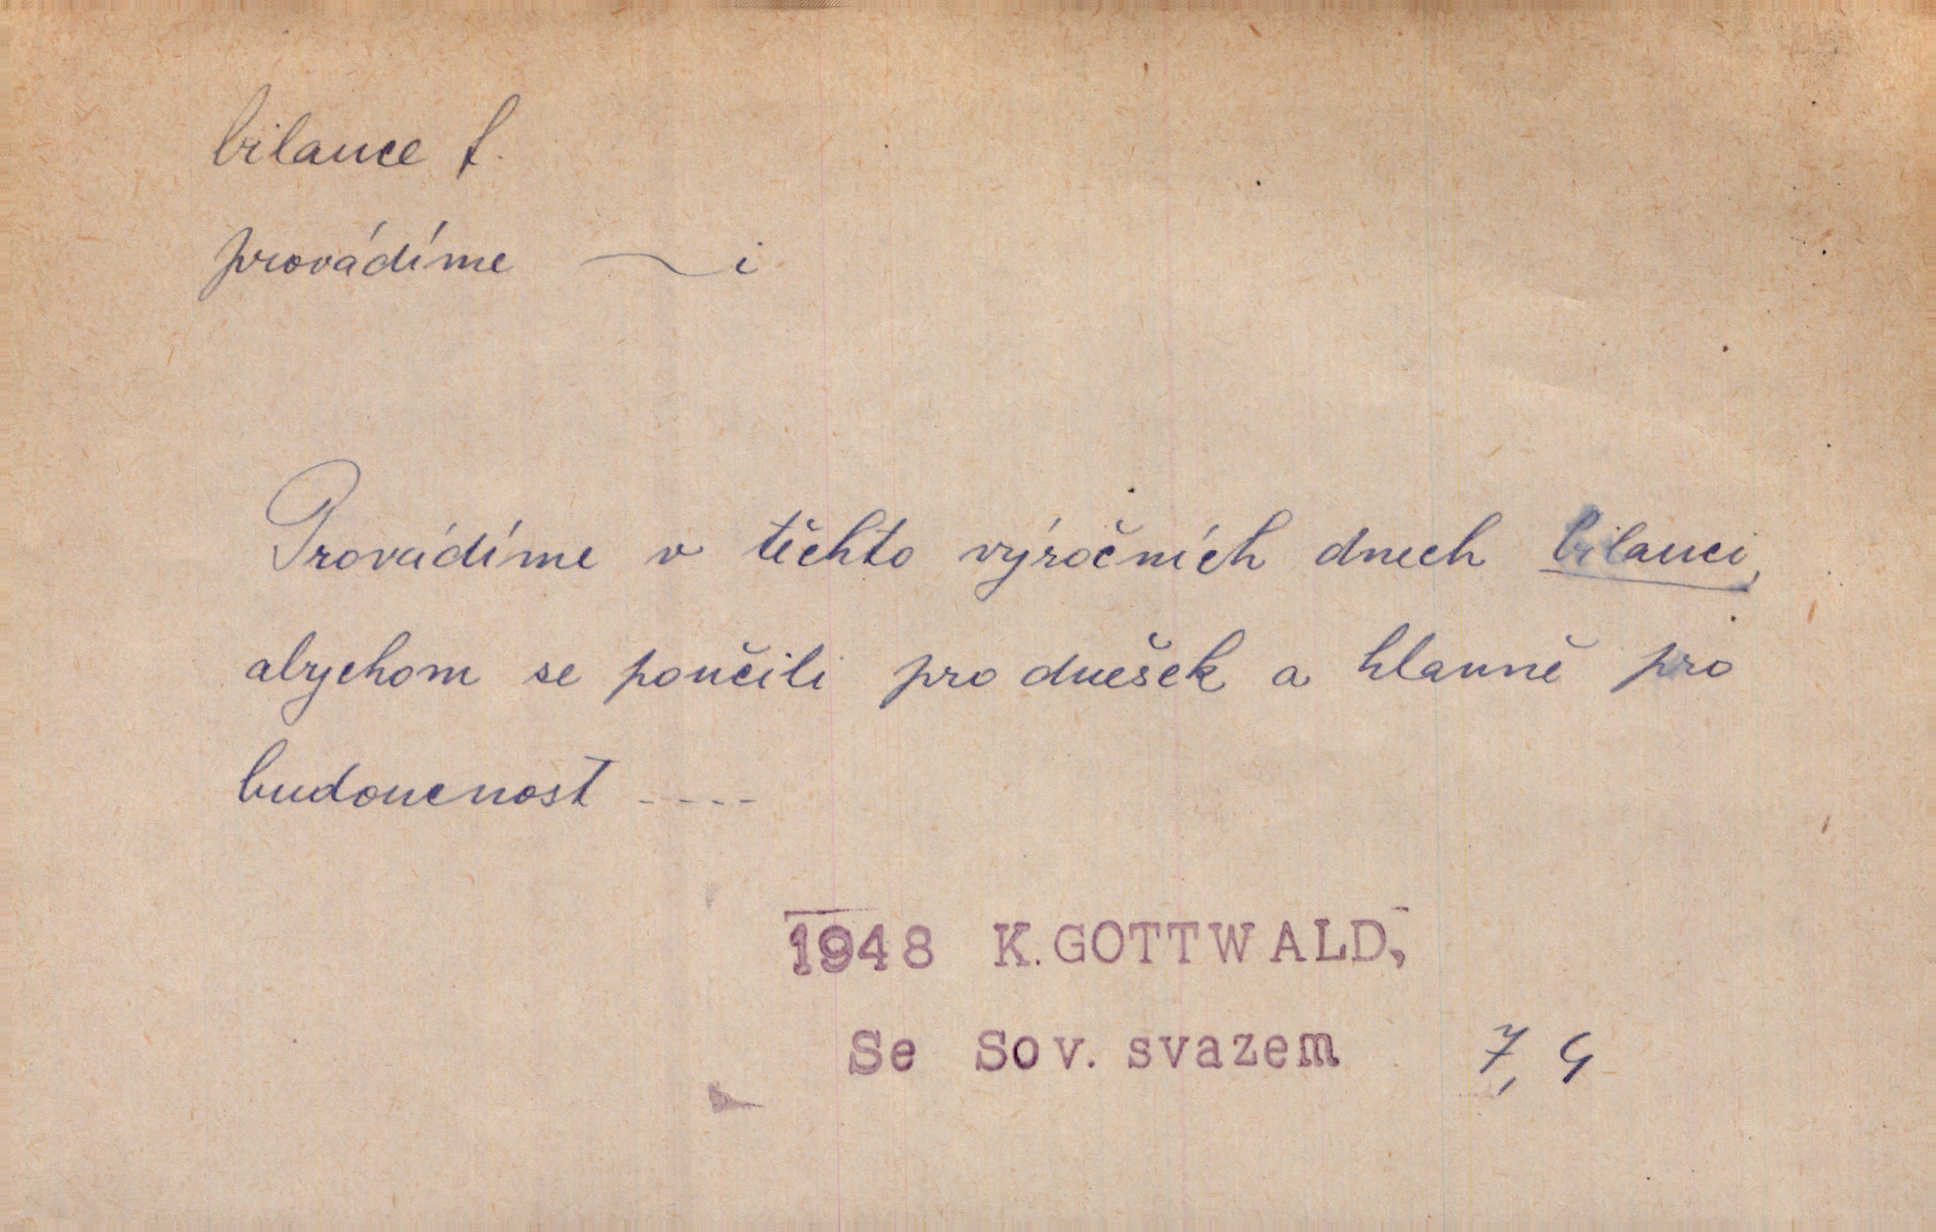 bilance f.
provádíme ~ i
Provádíme v těchto výročních dnech bilanci,
abychom se poučili pro dnešek a hlavně pro
budoucnost ----
1948 K. GOTTWALD,
Se Sov. svazem 7, 9